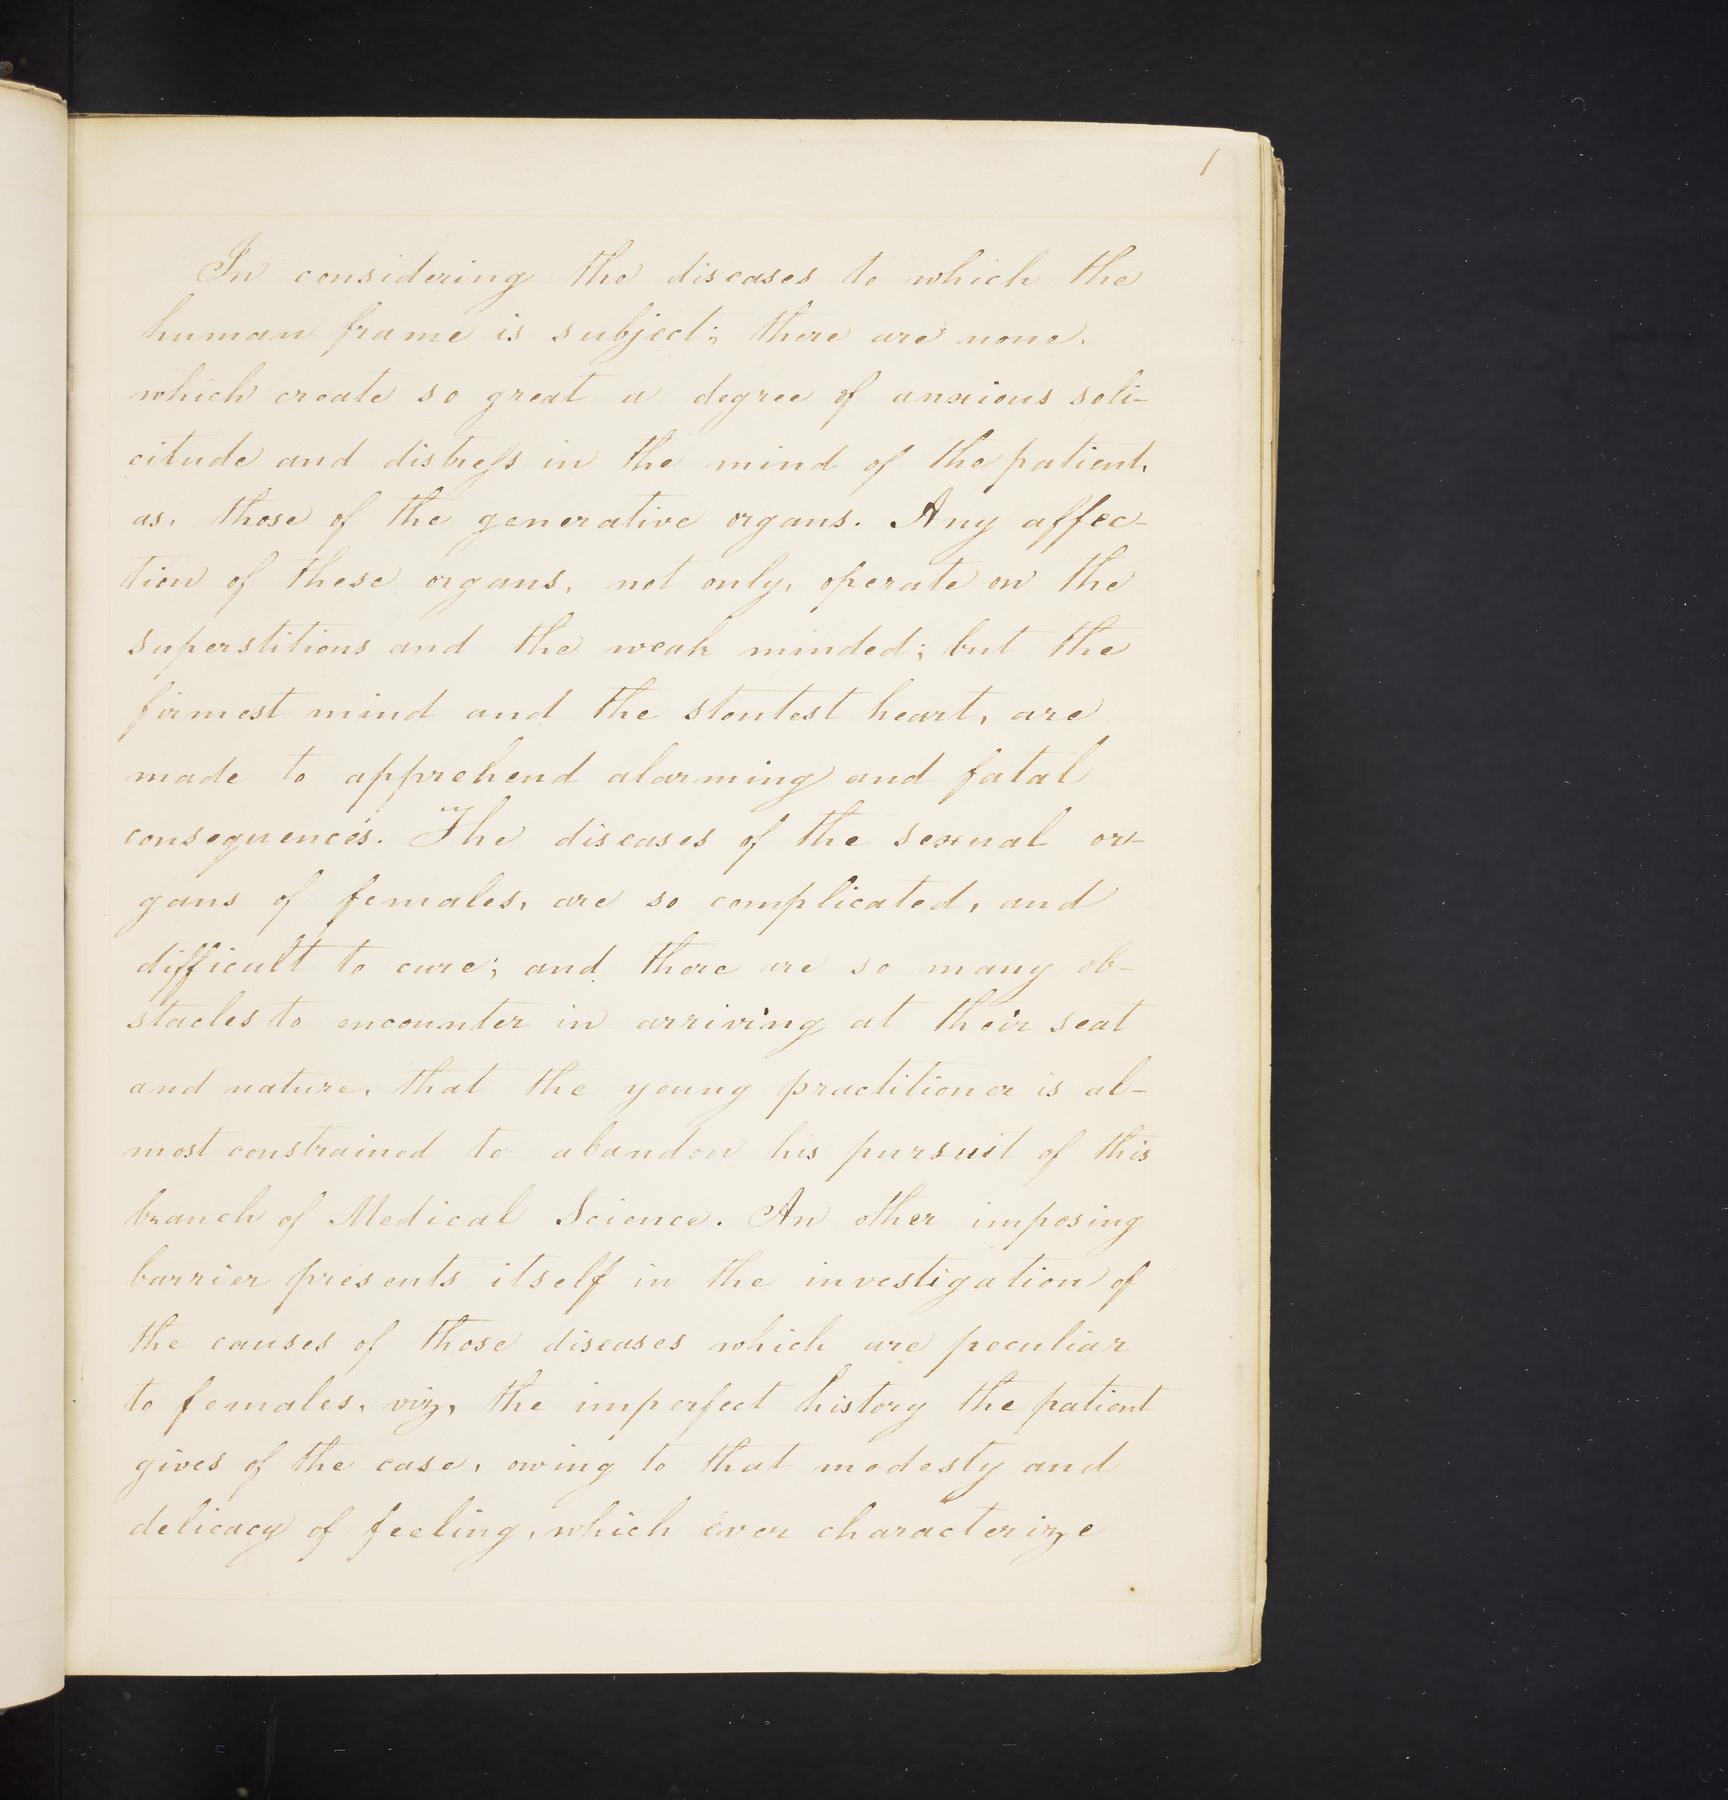 1
In considering the diseases to which the
human frame is subject; there are none,
which create so great a degree of anxious soli-
citude and distress in the mind of the patient,
as, those of the generative organs. Any affec-
tion of these organs, not only, operate on the
superstitious and the weak minded; but the
firmest mind and the stoutest heart, are
made to apprehend alarming and fatal
consequences. The diseases of the sexual or-
gans of females, are so complicated, and
difficult to cure; and there are so many ob-
stacles to encounter in arriving at their seat
and nature, that the young practitioner is al-
most constrained to abandon his pursuit of this
branch of Medical Science. An other imposing
barrier presents itself in the investigation of
the causes of those diseases which are peculiar
to females, viz, the imperfect history the patient
gives of the case, owing to that modesty and
delicacy of feeling, which ever characterize